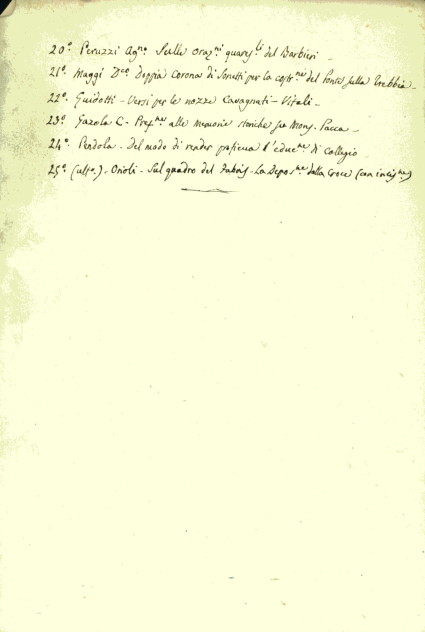 20.° Peruzzi Ag.no Sulle Oraz.ni quares.li del Barbieri -
21.° Maggi D.co Doppia Corona di Sonetti per la costr.ne del Ponte sulla Trebbia -
22.° Guidotti - Versi per le nozze Cavagnati - Vitali -
23.° Gazola C. Pref.ne alle memorie storiche su Mons. Pacca -
24.° Pendola - Del modo di render proficua l'educ.ne di collegio -
25.° (ult.o) - Orioli - Sul quadro del - La Depos.ne dalla Croce (con incis.ne)